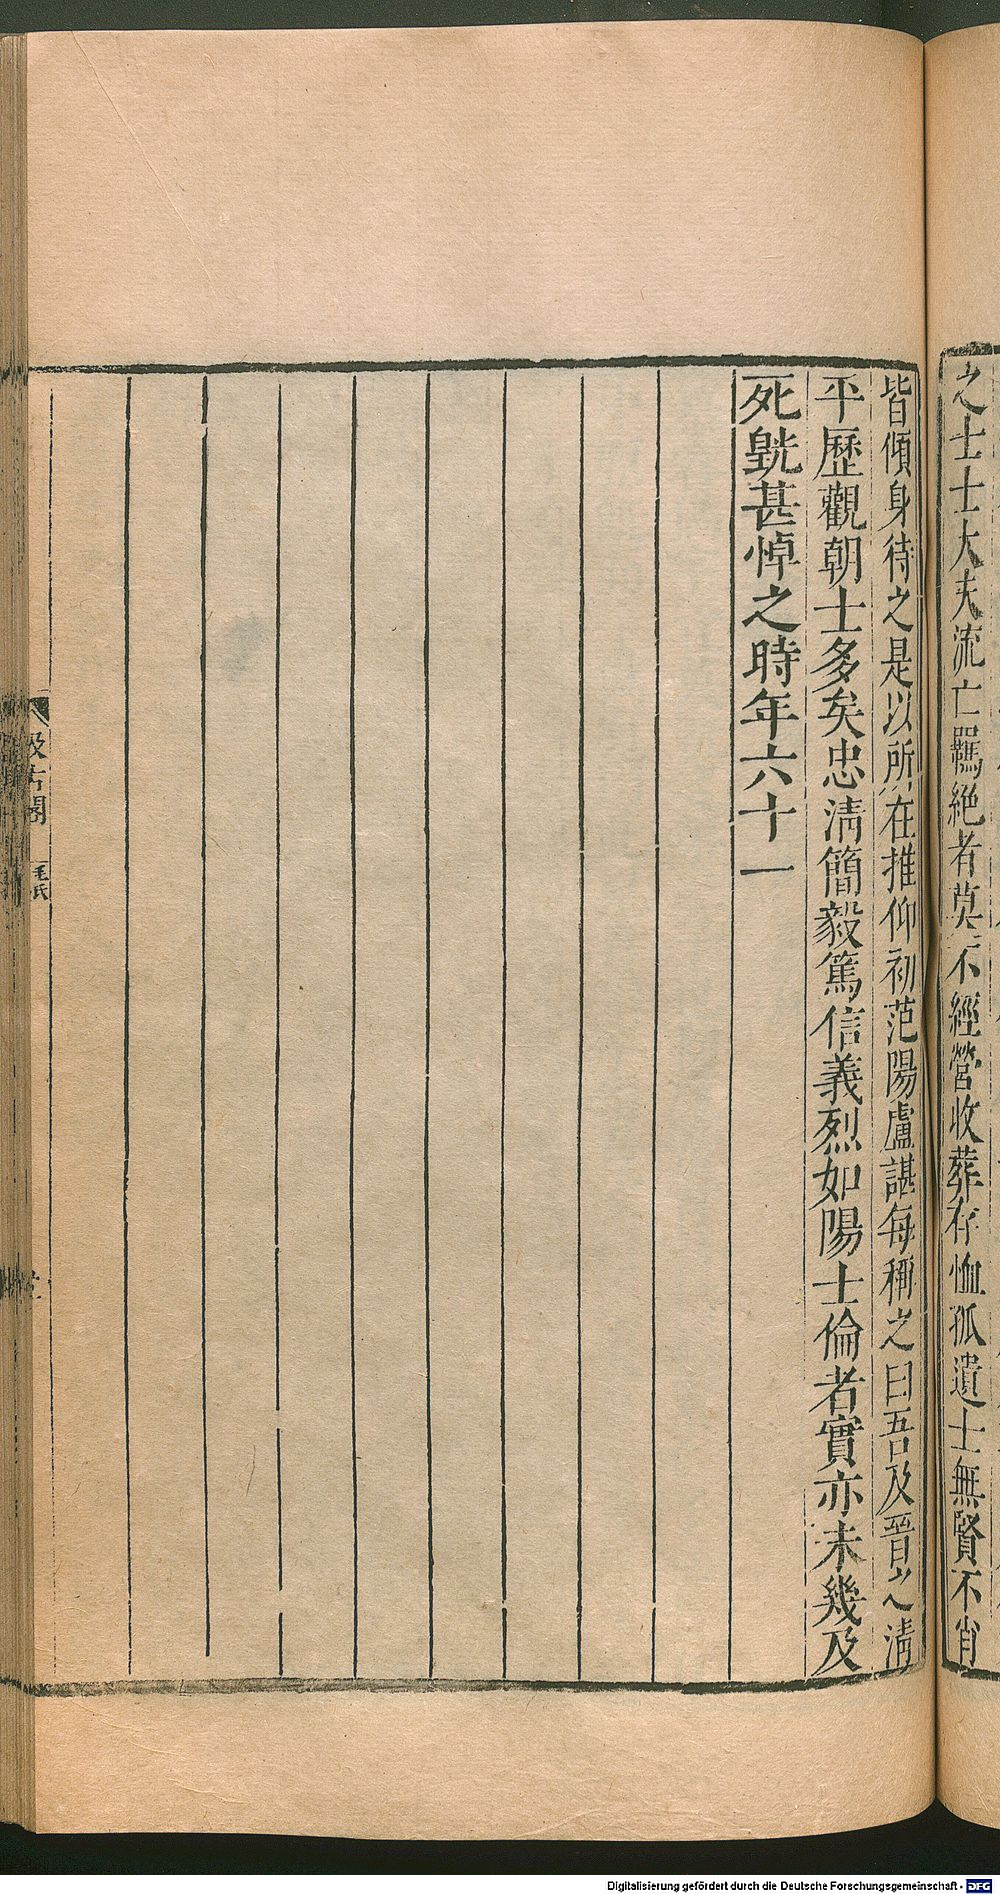 之士士大夫流亡羈絕者莫不經營收葬存恤孤遺士無賢不肖
皆傾身待之是以所在推仰初范陽盧諶每稱之曰吾及晉之淸
平歷觀朝士多矣忠淸簡毅篤信義烈如陽士倫者實亦未幾及
死皝甚悼之時年六十一
汲古閣
毛氏
Digitalisierung gefördert durch die Deutsche Forschungsgemeinschaft - DFG